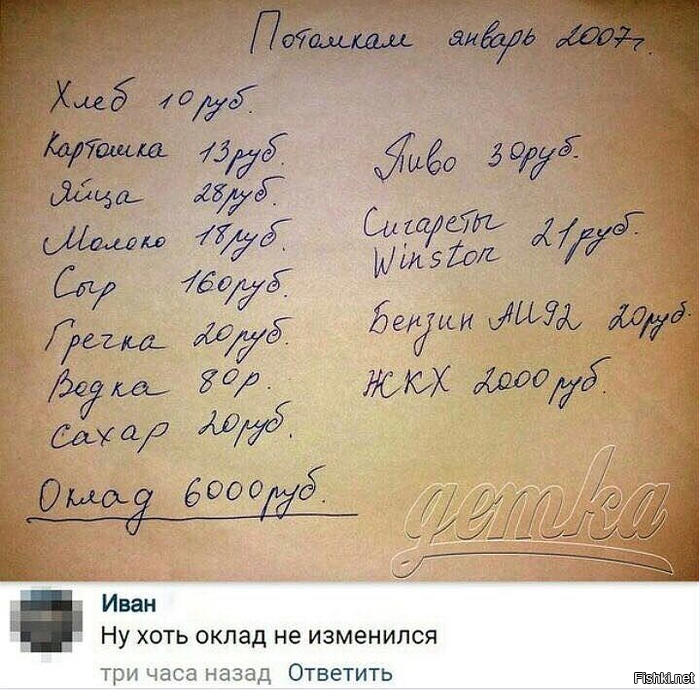 Потомкам январь 2007г.
Хлеб 10руб.
Картошка 13руб.
Яйца 28руб.
Молоко 18руб.
Сыр 160руб.
Гречка 20руб.
Водка 80р.
Сахар 20руб.
Оклад 6000руб.
Пиво 30руб.
Сигареты
Winston 21руб.
Бензин АИ92 20руб.
ЖКХ 2000руб.
gemka
Иван
Ну хоть оклад не изменился
три часа назад Ответить
Fishki.net